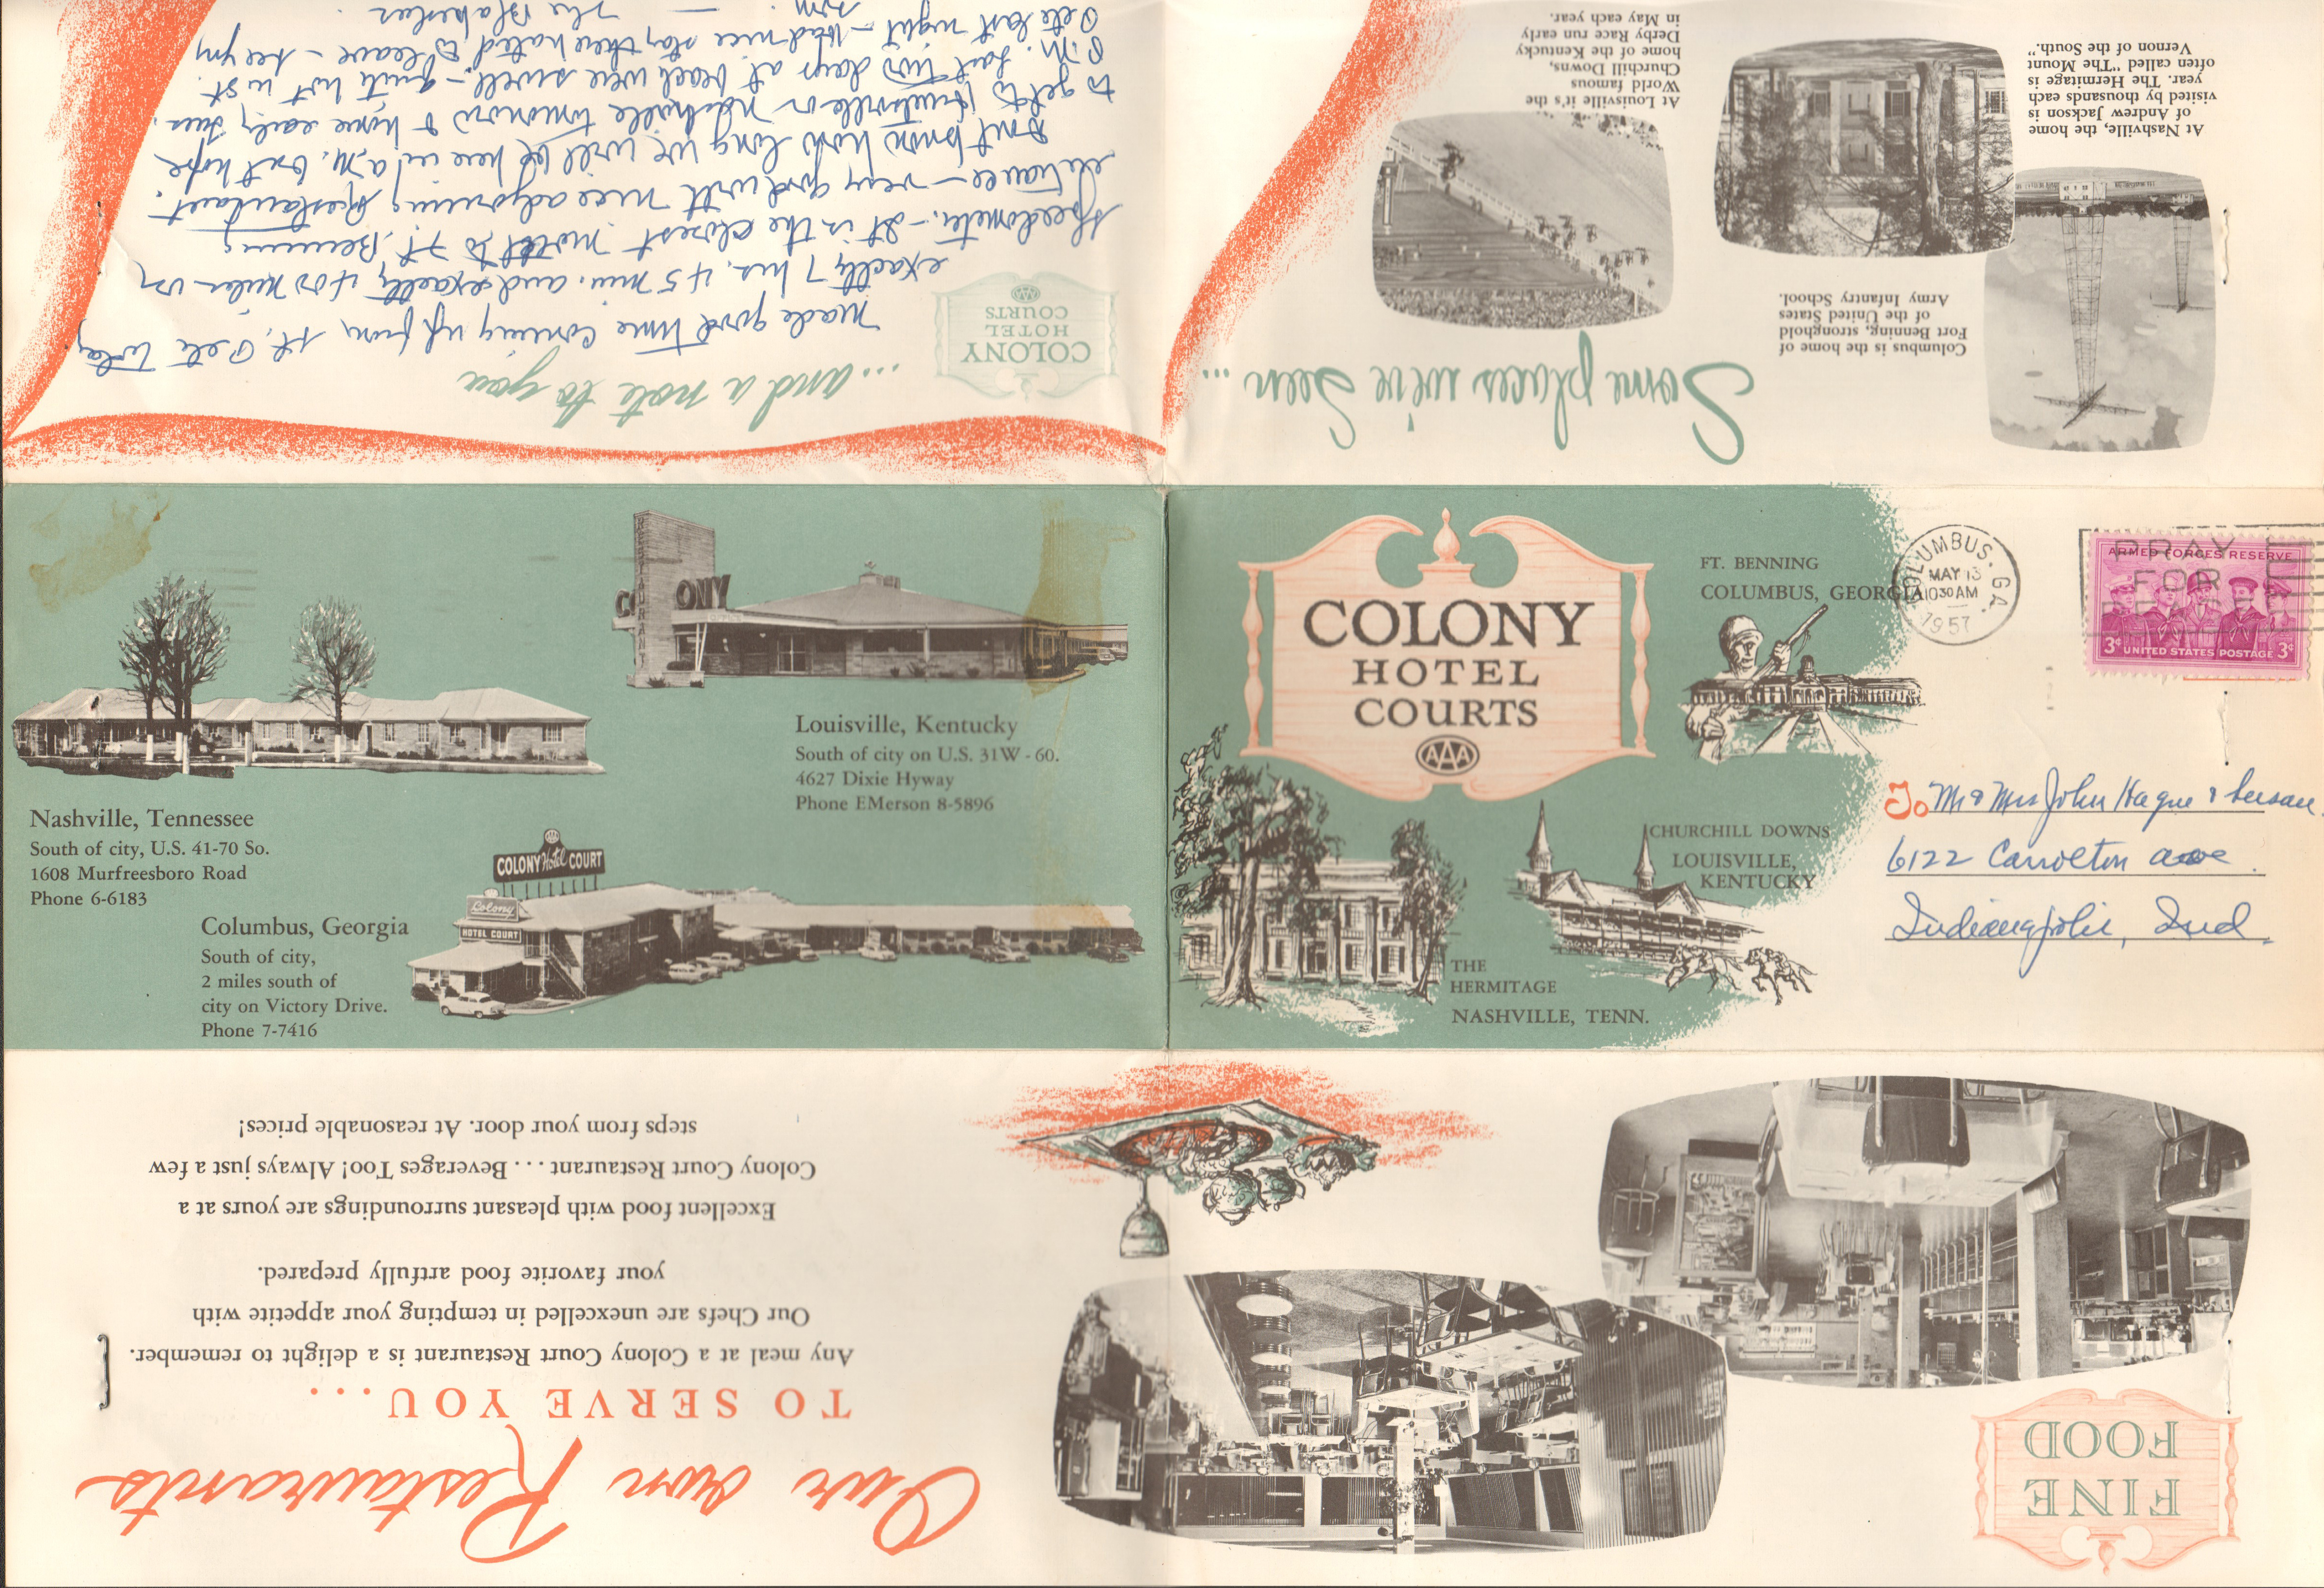 ...and a note to you
COLONY
HOTEL
COURTS
AAA
Made good time coming up from St. Pete today
exactly 7 hrs. 45 min. and exactly 400 miles on
speedometer. - It is the closest motel to Ft. Benning
entrance - very good with nice adjoining Restaurant.
Don't know how long we will be here in a.m. but hope
to get to Nashville tomorrow & home early Tues.
P.M. Last two days at beach were swell - quite hot in St.
Pete last night - Had nice stay there hated to leave - see you
The Blakeslees
Some places we've seen ...
Columbus is the home of
Fort Benning, stronghold
of the United States
Army Infantry School.
At Nashville, the home
of Andrew Jackson is
visited by thousands each
year. The Hermitage is
often called "The Mount
Vernon of the South."
At Louisville it's the
World famous
Churchill Downs,
home of the Kentucky
Derby Race run early
in May each year.
RESTAURANT
COLONY
Louisville, Kentucky
South of city on U.S. 31W - 60.
4627 Dixie Hyway
Phone EMerson 8-5896
Nashville, Tennessee
South of city, U.S. 41-70 So.
1608 Murfreesboro Road
Phone 6-6183
COLONY Hotel COURT
Colony
HOTEL COURT
Columbus, Georgia
South of city,
2 miles south of
city on Victory Drive.
Phone 7-7416
COLONY
HOTEL
COURTS
AAA
FT. BENNING
COLUMBUS, GEORGIA
CHURCHILL DOWNS
LOUISVILLE,
KENTUCKY
THE
HERMITAGE
NASHVILLE, TENN.
COLUMBUS, GA.
MAY 13
1030 AM
1957
PRAY
FOR
PEACE
ARMED FORCES RESERVE
3¢ UNITED STATES POSTAGE 3¢
To Mr & Mrs John Hague & Susan
6122 Carrolton ave
Indianapolis, Ind.
FINE
FOOD
Our own Restaurants
TO SERVE YOU...
Any meal at a Colony Court Restaurant is a delight to remember.
Our Chefs are unexcelled in tempting your appetite with
your favorite food artfully prepared.
Excellent food with pleasant surroundings are yours at a
Colony Court Restaurant . . . Beverages Too! Always just a few
steps from your door. At reasonable prices!